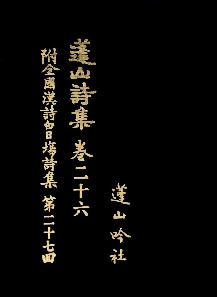 蓬山詩集 卷二十六
附全國漢詩白日場詩集 第二十七回
蓬山吟社